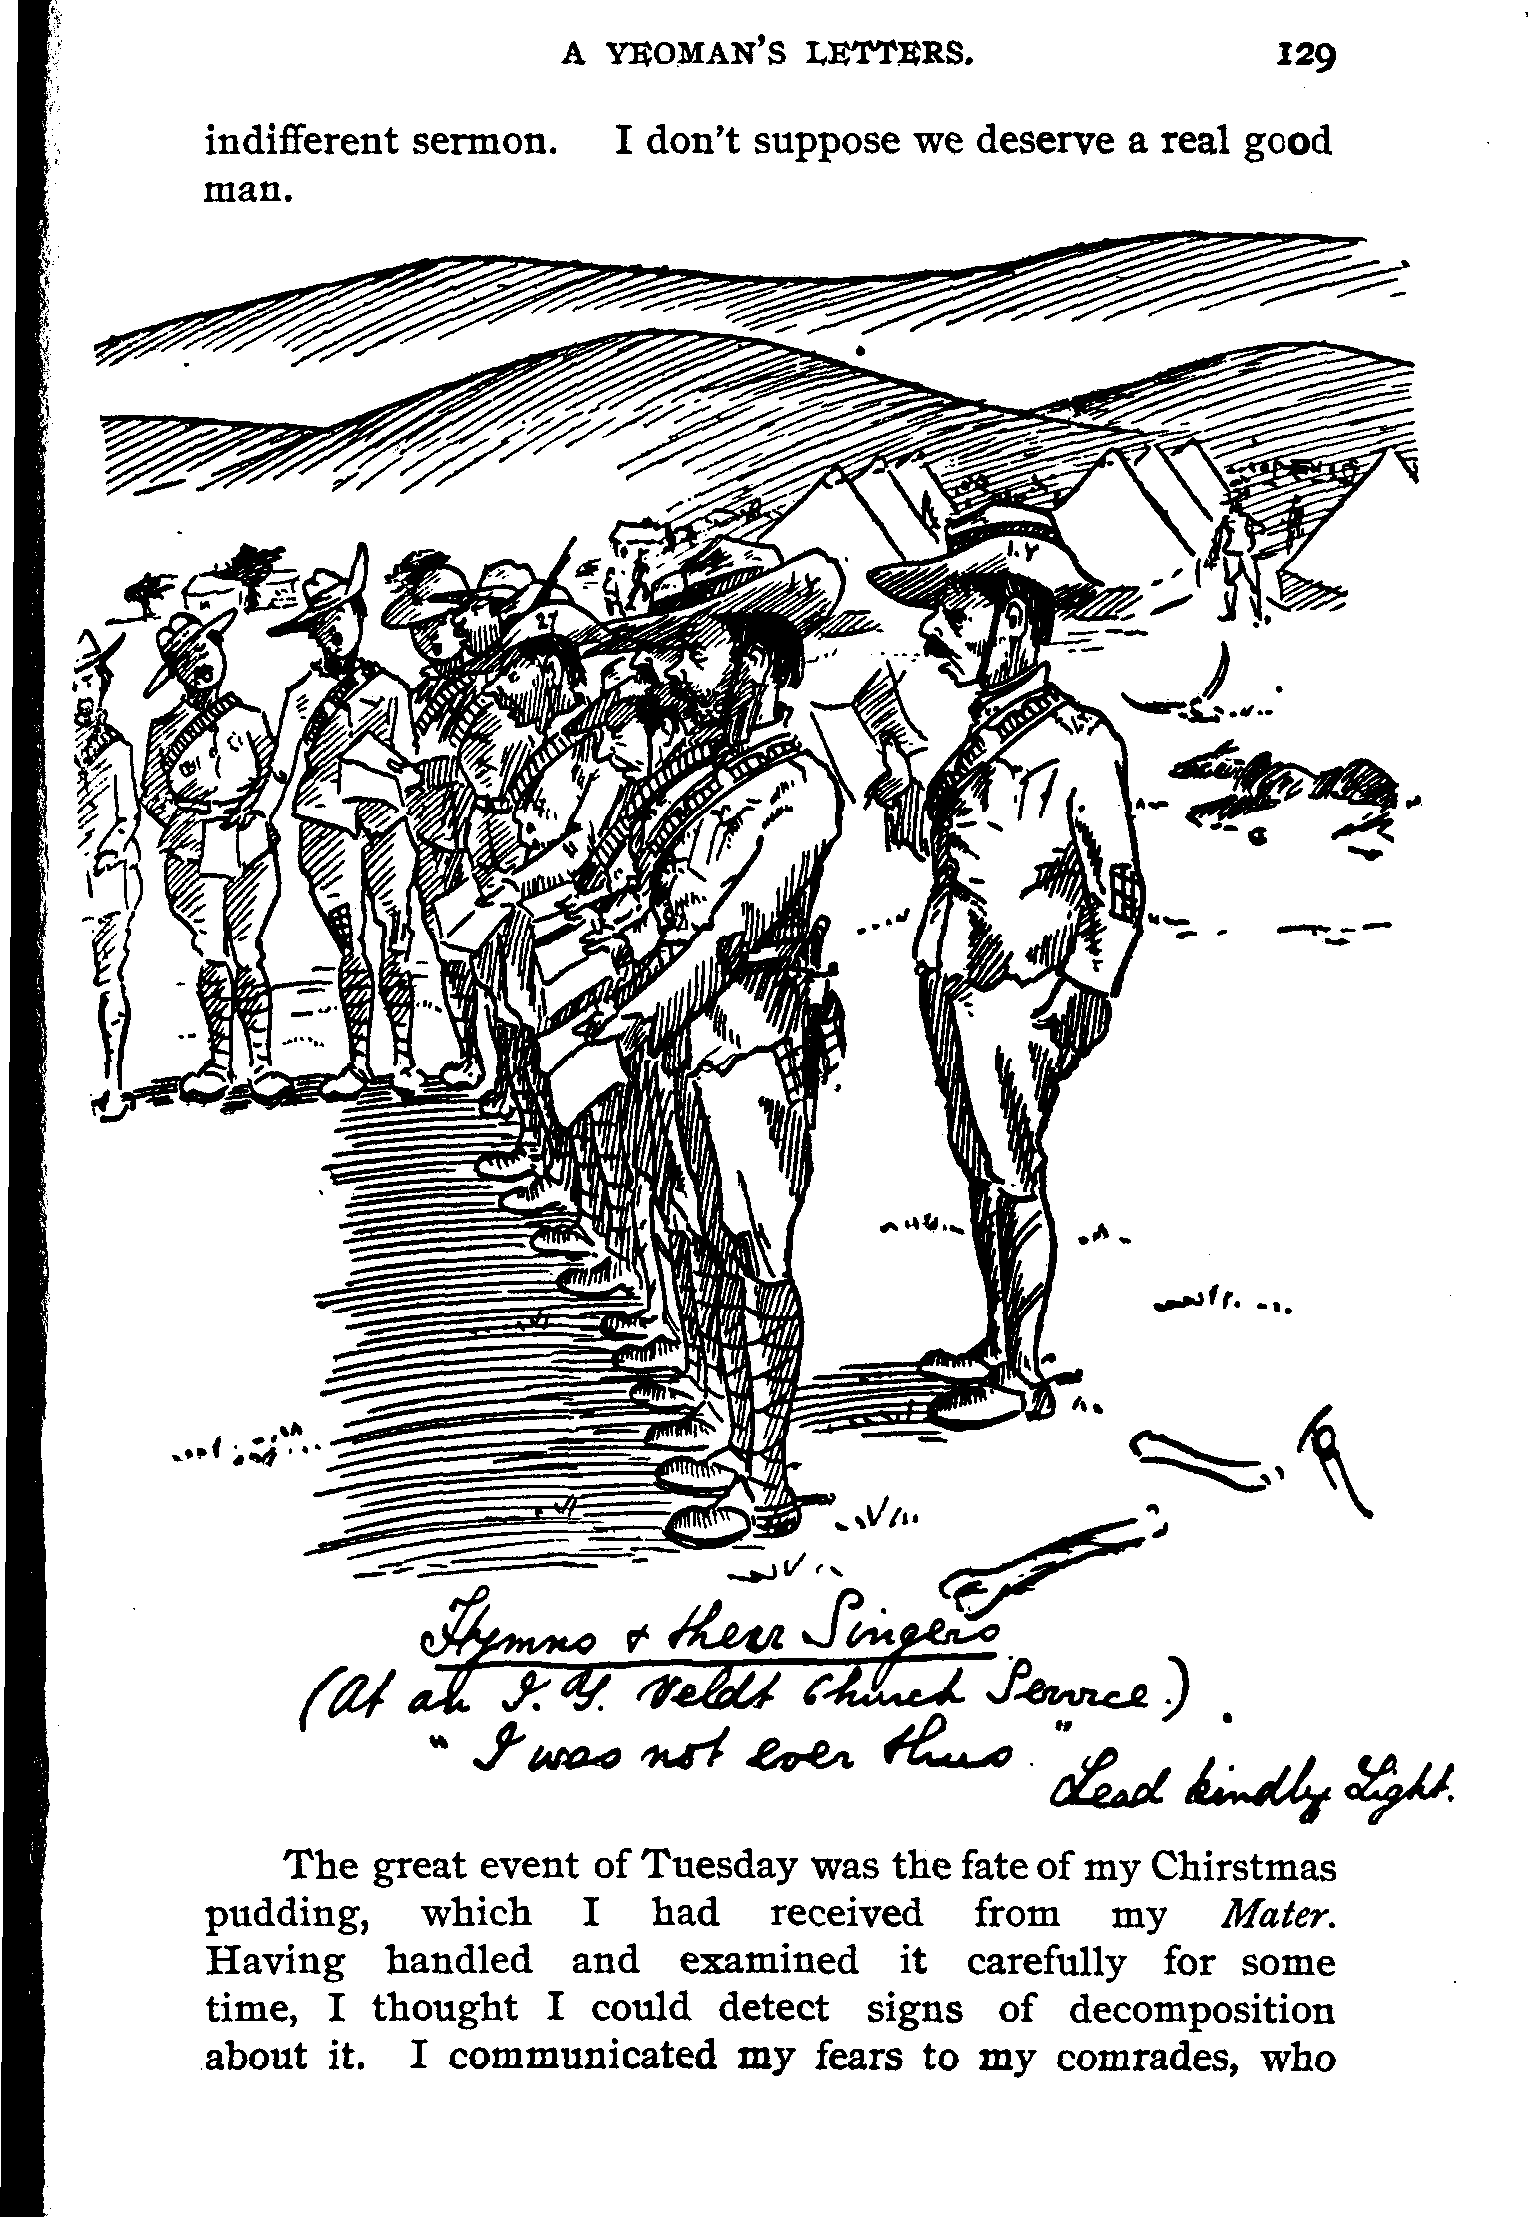 A YEOMAN'S LETTERS. 129
indifferent sermon. I don't suppose we deserve a real good
man.
I.Y
I.Y
27
Hymns & their Singers
(At an I.Y. Veldt Church Service.)
"I was not ever thus."
Lead kindly Light.
The great event of Tuesday was the fate of my Chirstmas
pudding, which I had received from my Mater.
Having handled and examined it carefully for some
time, I thought I could detect signs of decomposition
about it. I communicated my fears to my comrades, who